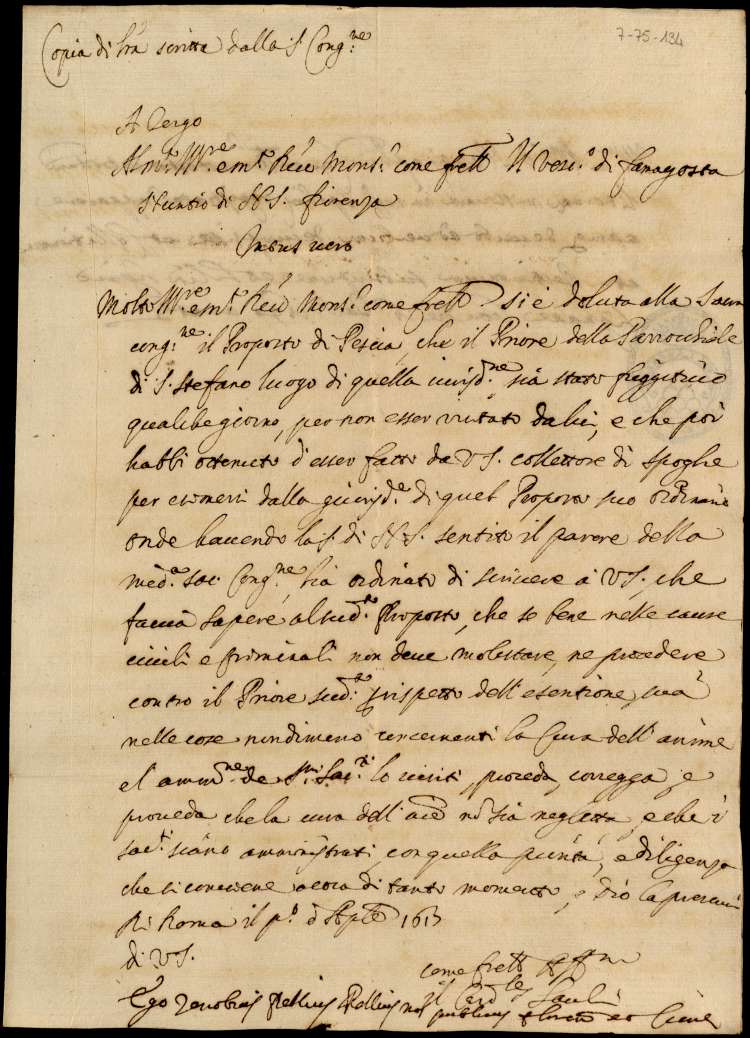 Copia di lra scritta dalla S. Cong.ne
7-75-134
A Tergo
Al m.to Ill.re e m.to Reu Mons.r come fratt.o Il Vesc.o di famagosta
Nuntio di N. S. fiorenza
Intus vero
Molto Ill.re e m.to Reu Mons.r come fratt.o si è doluta alla Sacra
Cong.ne il Proposto di Pescia, che il Priore della Parrochiale
di S. Stefano luogo di quella iurisd.ne sia stato fuggitiuo
qualche giorno, per non esser visitato da lui, e che poi
habbi ottenuto d'esser fatto da V S. collettore di spoglie
per esimersi dalla giurisd.e di quel Proposto suo ordinario
onde hauendo la S. di N. S. sentito il parere della
med.a sac. Cong.ne, hà ordinato di scriuere à V S., che
faccia sapere al sud.to Proposto, che se bene nelle cause
ciuili e criminali non deue molestare, ne procedere
contro il Priore sud.to rispetto dell'esentione sua
nelle cose nondimeno concernenti la Cura dell'anime
e l'amm.ne de S.mi Sac.ti lo visiti, proceda, corregga, e
proueda che la cura dell'aie nō sia negletta, e che i
sac.ti siano amministrati con quella puntà, e diligenza
che si conuiene a cosa di tanto momento, e Dio la preserui
Di Roma il p.o d 1613
di V S.
come fratt.o Aff.mo
il Card.le Sauli
Ego Zenobius not. publicus